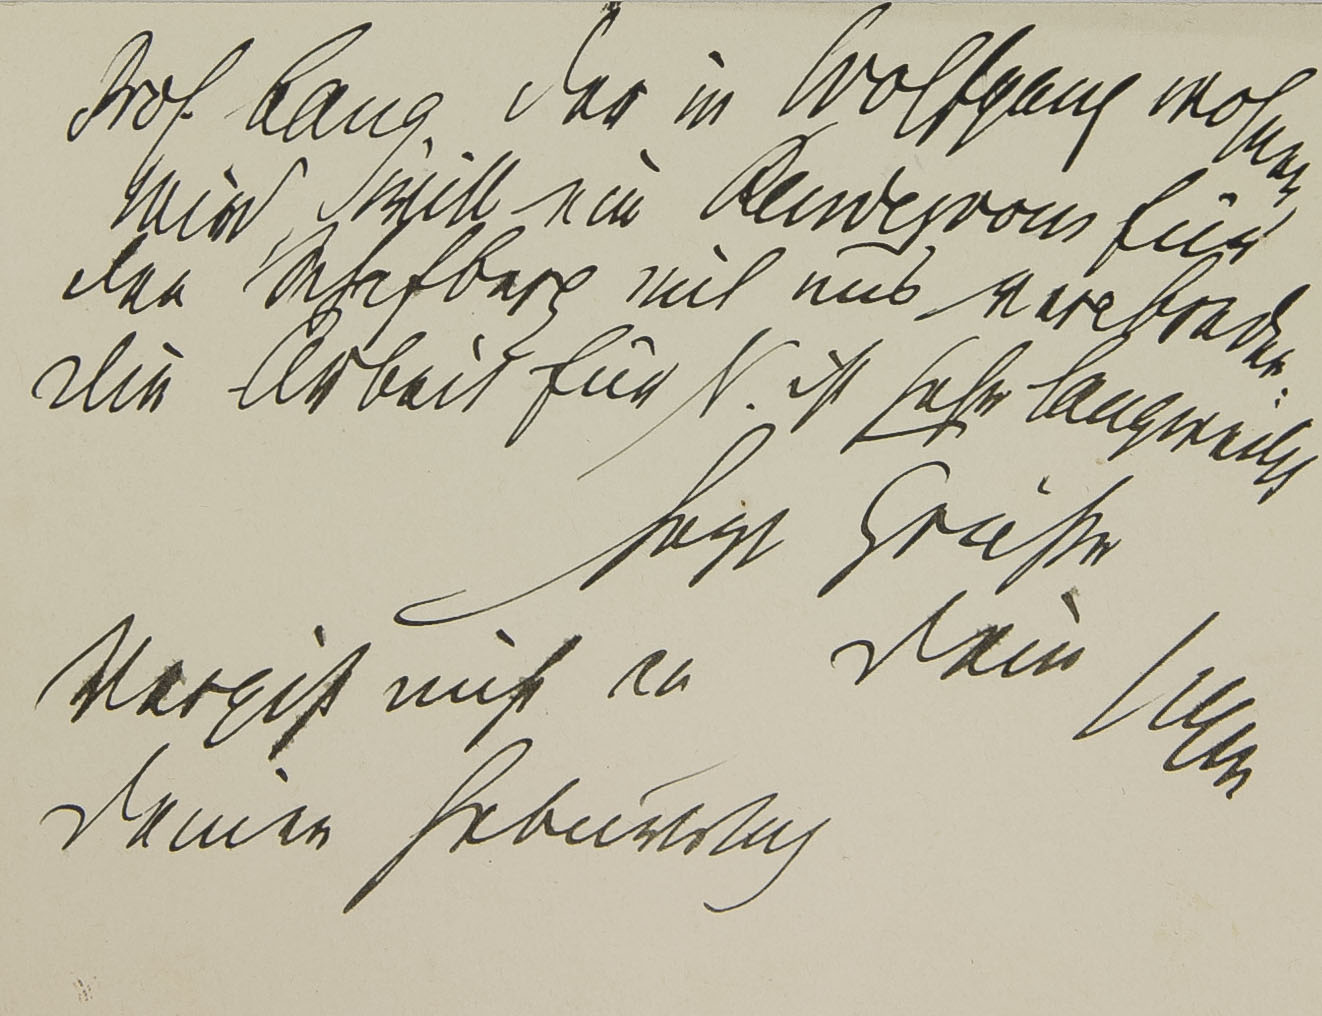 Prof. Lang, der in Wolfgang wohnen
wird, will ein Rendezvous für
den Schafberg mit uns verabreden.
Die Arbeit für N. ist sehr langweilig
Grüße
Dein
Vergiß nicht an
Deinen Geburtstag